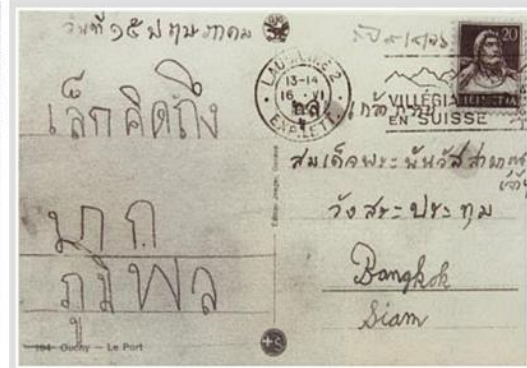 วันที่ ๑๕ พฤษภาคม
เล็กคิดถึง
มาก
ภูมิพล
194 Ouchy — Le Port
LAUSANNE 2
13-14
16 · VI
EXP. LETT.
VILLÉGIA
EN SUISSE
20
HELVETIA
สมเด็จพระพันวัสสา
วังสระประทุม
Bangkok
Siam